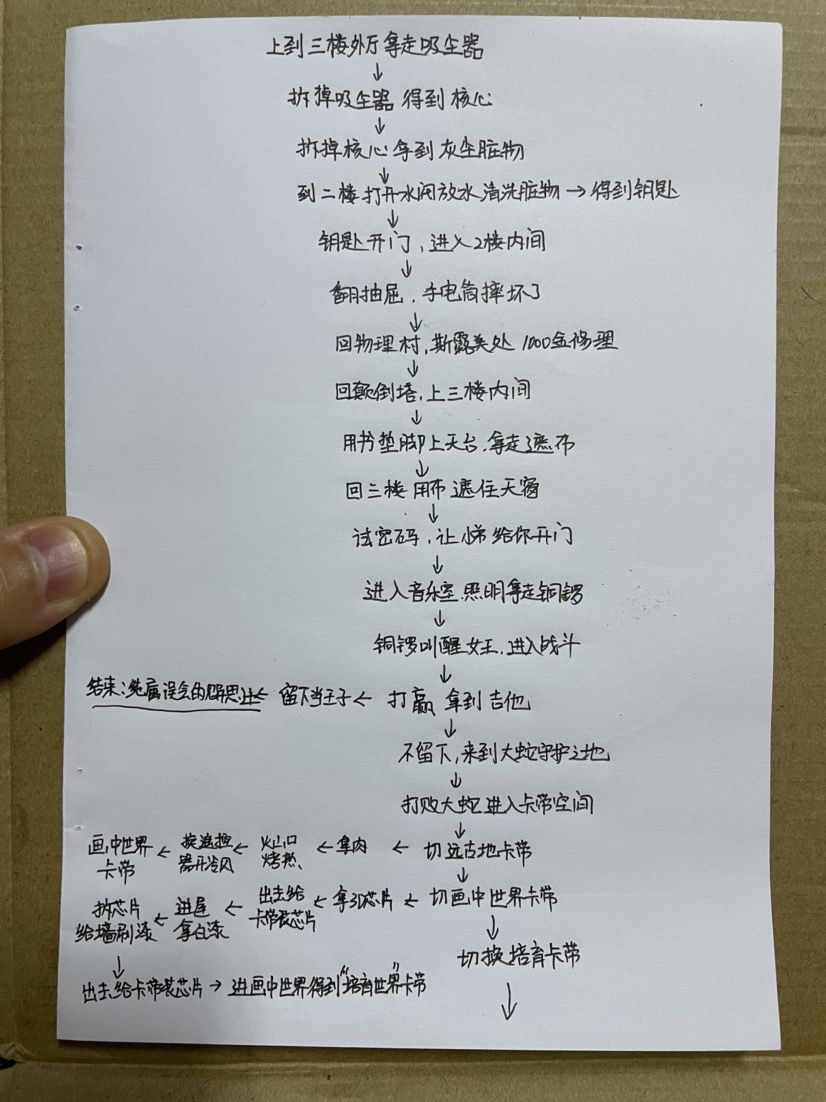 上到三楼外厅拿走吸尘器
↓
拆掉吸尘器 得到核心
↓
拆掉核心拿到灰尘脏物
↓
到二楼打开水闸放水清洗脏物→得到钥匙
↓
钥匙开门,进入2楼内间
↓
翻抽屉,手电筒摔坏了
↓
回物理村,斯露美处1000金修理
↓
回颠倒塔,上三楼内间
↓
用书垫脚上天台,拿走遮布
↓
回三楼用布遮住天窗
↓
试密码,让小弟给你开门
↓
进入音乐室照明拿走铜锣
↓
铜锣叫醒女王,进入战斗
↓
结束:纯属误会的 ← 留下当王子 ← 打赢拿到吉他
↓
不留下,来到大蛇守护之地
↓
打败大蛇进入卡带空间
↓
画中世界卡带 ← 换遥控器开冷风 ← 火山口烤热 ← 拿肉 ← 切远古地卡带
↓
拆芯片给墙刷漆 ← 进屋拿白漆 ← 出去给卡带装芯片 ← 拿3D芯片 ← 切画中世界卡带
↓
出去给卡带装芯片→进画中世界得到“培育世界”卡带
↓
切换培育卡带
↓